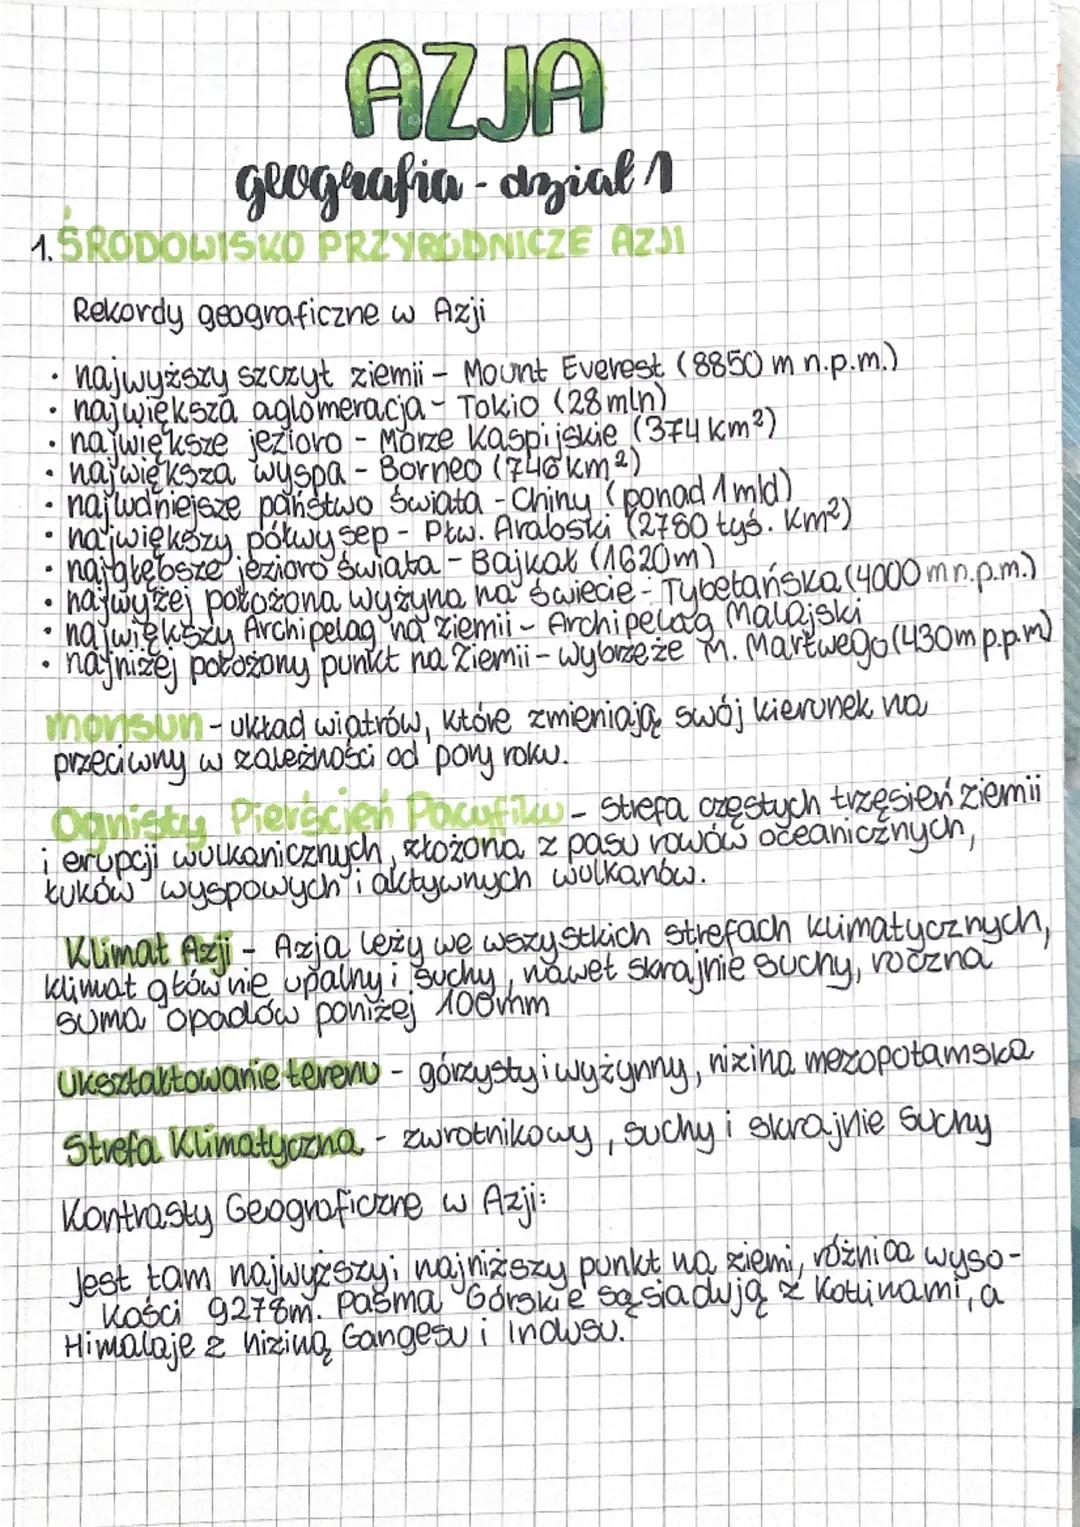 AZJA
geografia - dział 1
1. ŚRODOWISKO PRZYRODNICZE AZJI
Rekordy geograficzne w Azji
• najwyższy szczyt ziemii - Mount Everest (8850 m n.p.m.)
• największa aglomeracja - Tokio (28 mln)
• największe jezioro - Morze Kaspijskie (374 km²)
• największa wyspa - Borneo (746 km²)
• najludniejsze państwo świata - Chiny (ponad 1 mld)
• największy półwysep - Płw. Arabski (2780 tyś. km²)
• najgłębsze jezioro świata - Bajkał (1620m)
• najwyżej położona wyżyna na świecie - Tybetańska (4000 m n.p.m.)
• największy Archipelag na ziemii - Archipelag Malajski
• najniżej położony punkt na Ziemii - wybrzeże M. Martwego (430m p.p.m)
monsun - układ wiatrów, które zmieniają swój kierunek na
przeciwny w zależności od pory roku.
Ognisty Pierścień Pacyfiku - strefa częstych trzęsień ziemii
i erupcji wulkanicznych, złożona z pasu rowów oceanicznych,
łuków wyspowych i aktywnych wulkanów.
Klimat Azji - Azja leży we wszystkich strefach klimatycznych,
klimat głównie upalny i suchy, nawet skrajnie suchy, roczna
suma opadów poniżej 100mm
Ukształtowanie terenu - górzysty i wyżynny, nizina mezopotamska
Strefa Klimatyczna - zwrotnikowy, suchy i skrajnie suchy
Kontrasty Geograficzne w Azji:
Jest tam najwyższy i najniższy punkt na ziemi, różnica wyso-
kości 9278m. Pasma Górskie sąsiadują z kotlinami, a
Himalaje z niziną Gangesu i Indusu.